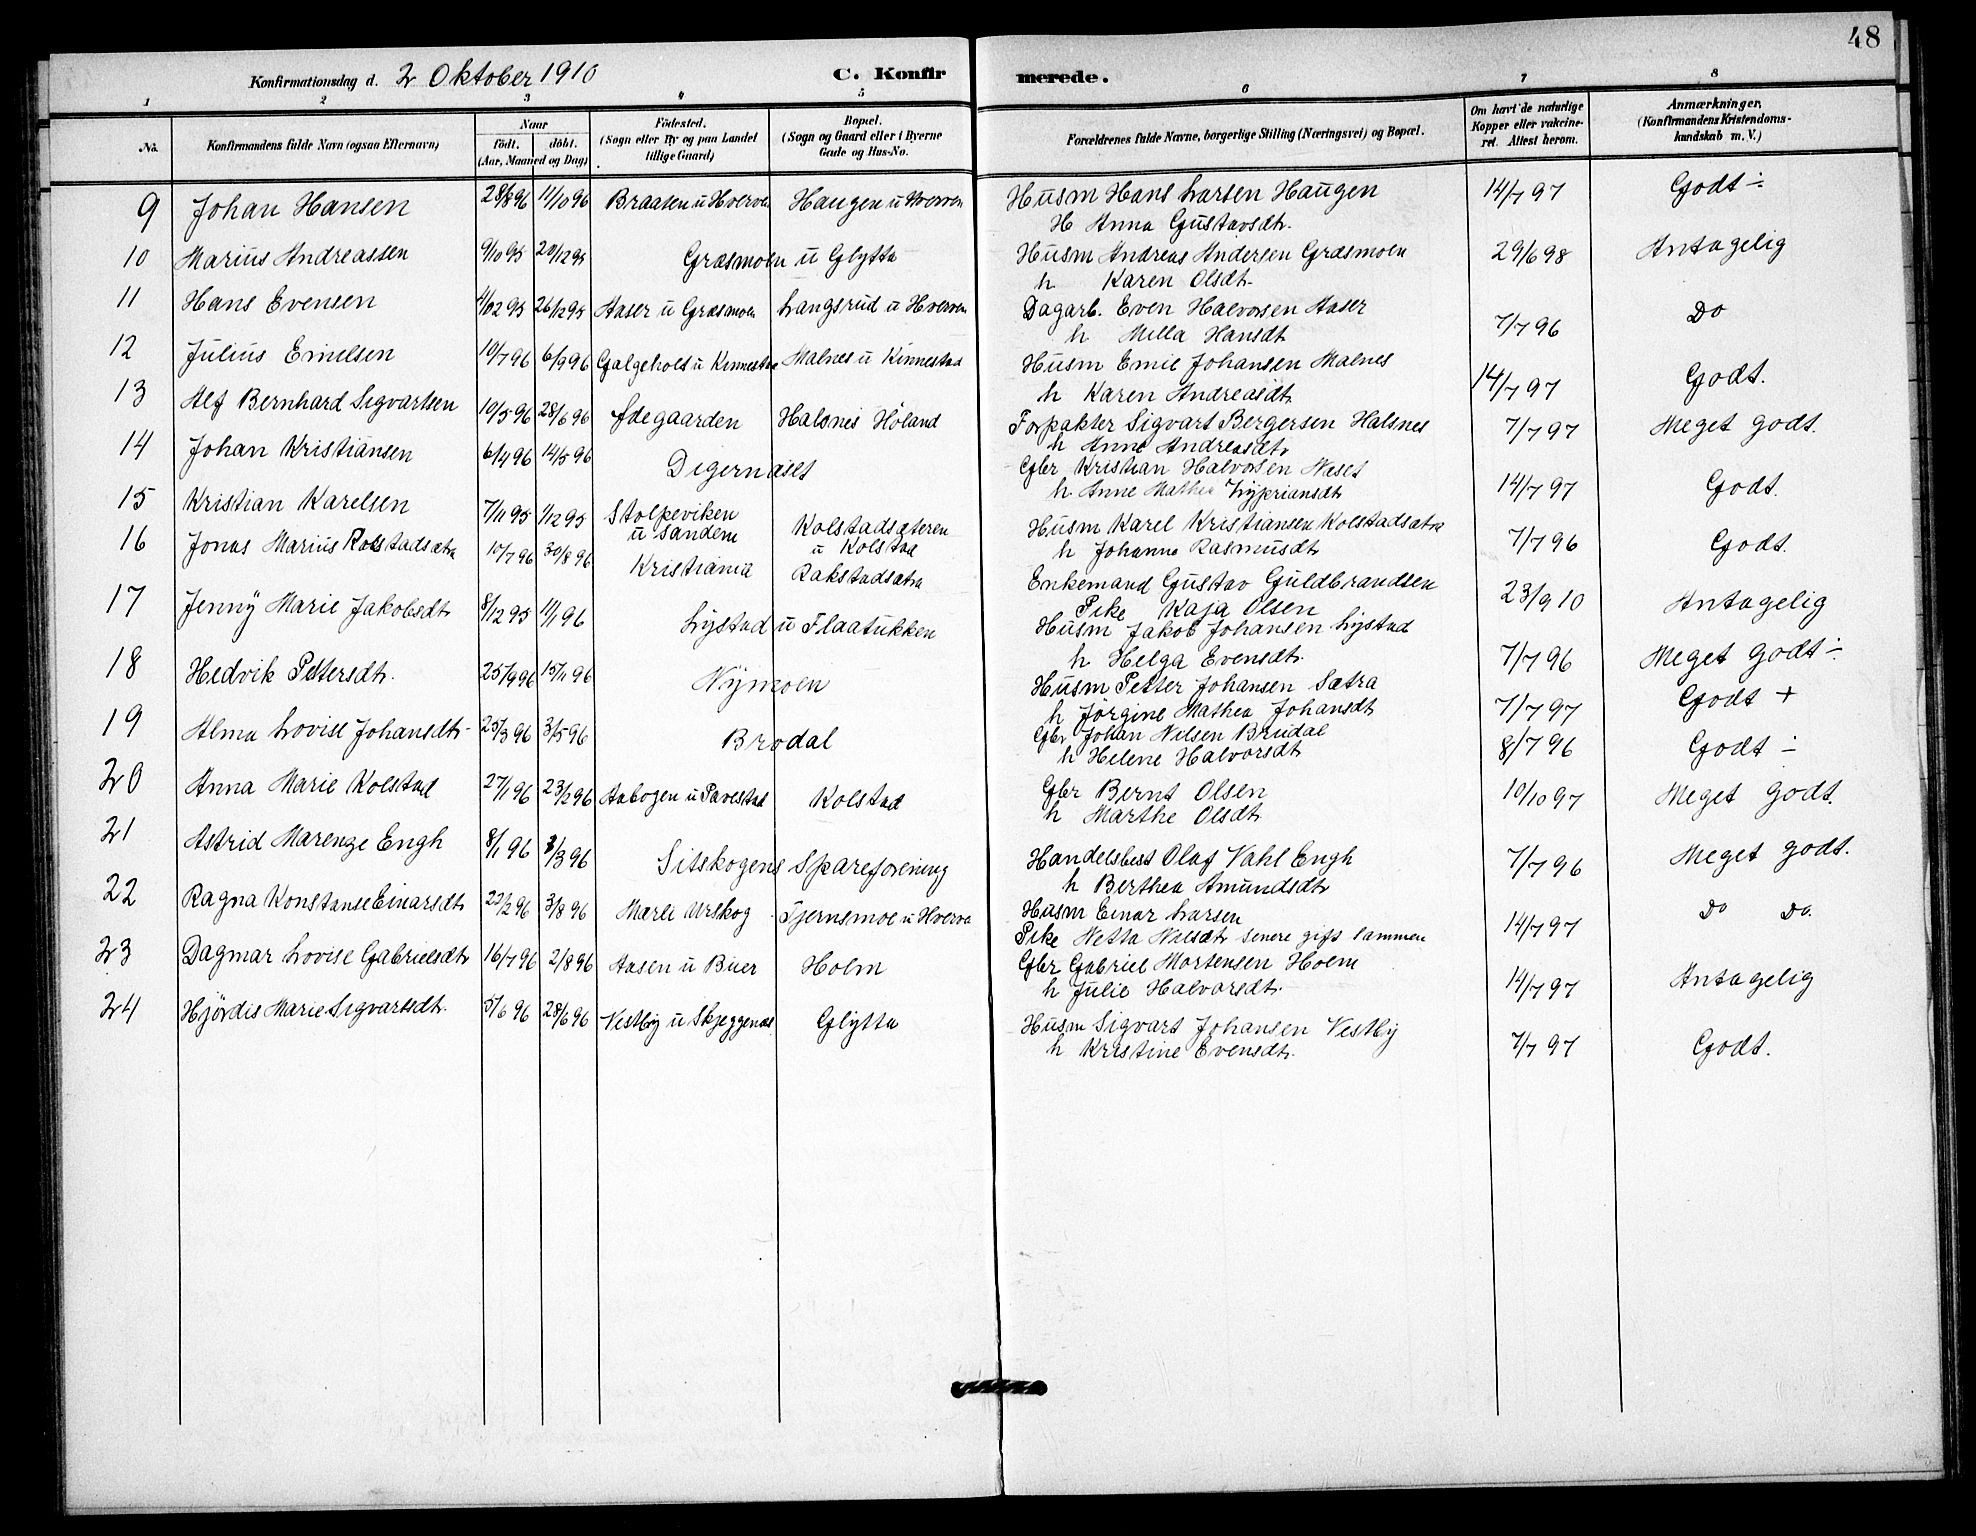 48
Konfirmationsdag d. 2 Oktober 1910 C. Konfirmerede.
1 2 3 4 5 6 7 8
No. Konfirmandens fulde Navn (ogsaa Efternavn) Naar født. døbt. (Aar, Maaned og Dag) Fødested. (Sogn eller By og paa Landet tillige Gaard) Bopæl. (Sogn og Gaard eller i Byerne Gade og Hus-No. Forældrenes fulde Navne, borgerlige Stilling (Næringsvei) og Bopæl. Om havt de naturlige Kopper eller vakcineret. Attest herom. Anmærkninger. (Konfirmandens Kristendomskundskab m. V.)
9 Johan Hansen 28/8 96 11/10 96 Braaten u Hverven Haugen u Hverven Husm Hans Larsen Haugen 14/7 97 Godt ÷
H Anna Gustavsdtr.
10 Marius Andreassen 9/10 95 20/12 95 Græsmoen u Glytta Husm Andreas Andersen Græsmoen 29/6 98 Antagelig
h Karen Olsdtr
11 Hans Evensen 4/02 95 26/12 95 Aaser u Græsmoen Langsrud u Hverven Dagarb. Even Halvorsen Aaser 7/7 96 Do
h Milla Hansdtr
12 Julius Emilsen 10/7 96 6/9 96 Galgeholt u Kinnestad Malnes u Kinnestad Husm Emil Johansen Malnes 14/7 97 Godt.
h Karen Andreasdtr
13 Alf Bernhard Sigvartsen 10/5 96 28/6 96 Ødegaarden Halsnes Höland Forpakter Sigvart Bergersen Halsnes 7/7 97 Meget godt.
h Anne Andreasdtr
14 Johan Kristiansen 6/4 96 14/5 96 Digernæset Gbr Kristian Halvorsen Neset 14/7 97 Godt.
h Anne Mathea Zypriansdtr
15 Kristian Karelsen 7/11 95 1/12 95 Stolpeviken u Sandem Kolstadsæteren u Kolstad Husm Karel Kristiansen Kolstadsætra 7/7 96 Godt.
h Johanne Rasmusdtr
16 Jonas Marius Rakstadsætra 10/7 96 30/8 96 Kristiania Rakstadsætra Enkemand Gustav Guldbrandsen 23/9 10 Antagelig
Pike Kaja Olsen
17 Jenny Marie Jakobsdtr 8/12 95 1/1 96 Lystad u Flaatukken Husm Jakob Johansen Lystad 7/7 96 Meget godt ÷
h Helga Evensdtr.
18 Hedvik Pettersdtr. 25/9 96 15/11 96 Nymoen Husm Petter Johansen Sætra 7/7 97 Godt +
h Jørgine Mathea Johansdtr
19 Alma Lovise Johansdtr 25/3 96 3/5 96 Brodal Gbr Johan Nilsen Brudal 8/7 96 Godt ÷
h Helene Halvorsdtr
20 Anna Marie Kolstad 27/1 96 23/2 96 Aabogen u Tavestad Kolstad Gbr Bernt Olsen 10/10 97 Meget godt.
h Marthe Olsdtr
21 Astrid Marenze Engh 8/1 96 8/3 96 Sitskogens Spareforening Handelsbest Olaf Vahl Engh 7/7 96 Meget godt.
h Berthea Amundsdtr
22 Ragna Konstanse Einarsdtr 22/2 96 3/8 96 Mærli Urskog Tjernsmoe u Hverve Husm Einar Larsen 14/7 97 Do Do.
Pike Netta Nilsdtr senere gift sammen
23 Dagmar Lovise Gabrielsdtr 16/7 96 2/8 96 Aasen u Buer Holm Gbr Gabriel Mortensen Holm 14/7 97 Antagelig
h Julie Halvorsdtr.
24 Hjördis Marie Sigvartsdtr. 5/6 96 28/6 96 Vestby u Skjeggenes Glytta Husm Sigvart Johansen Vestby 7/7 97 Godt.
h Kristine Evensdtr.